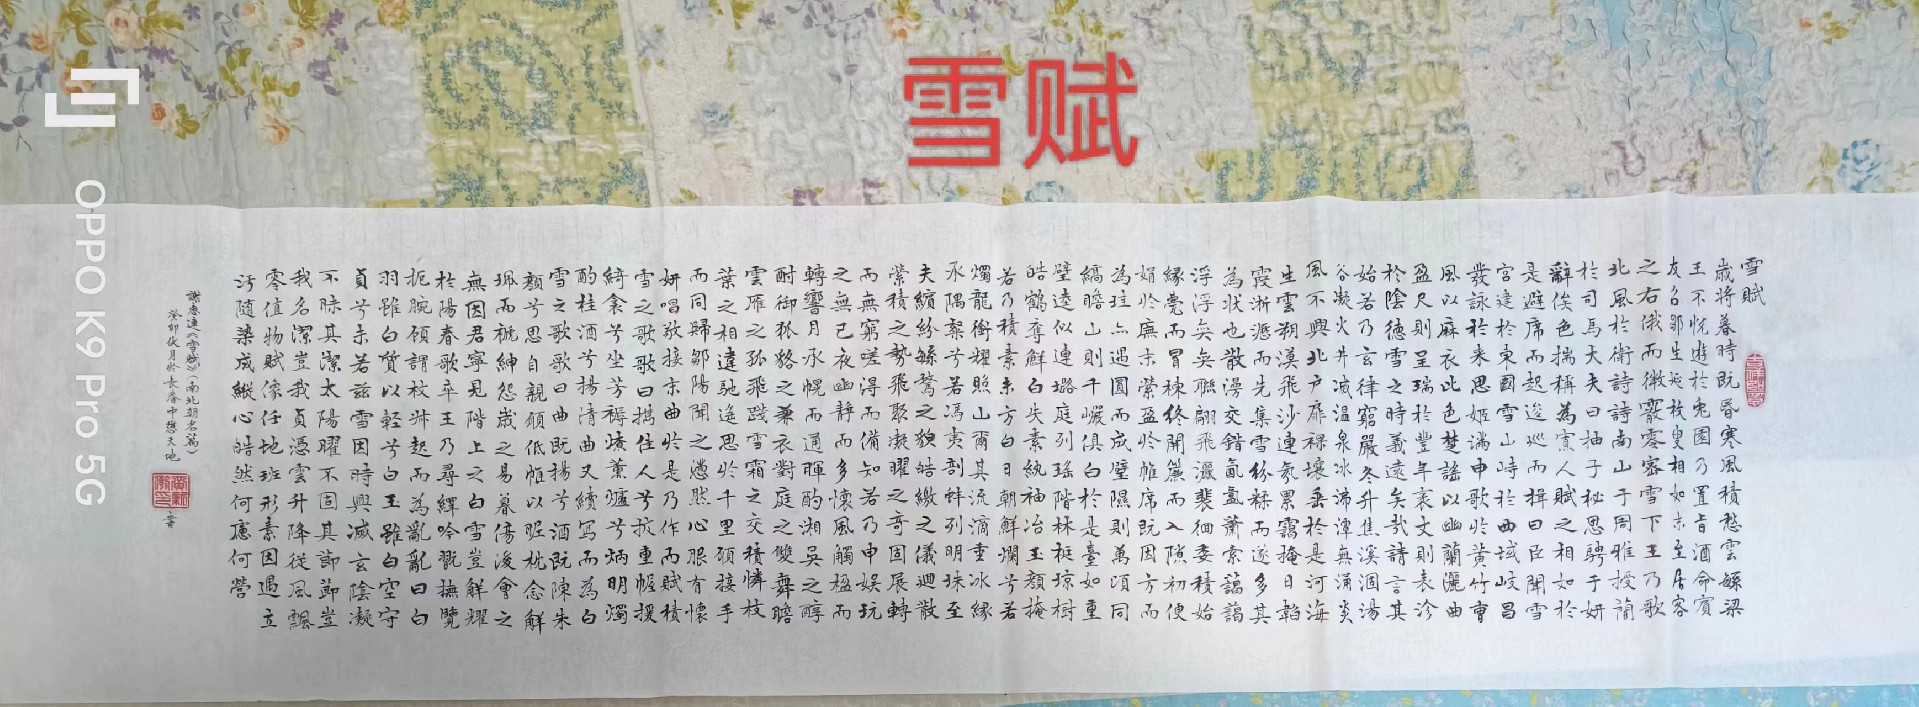 雪赋
雪賦
歲將暮時既昏寒風積愁雲繇梁
王不悅遊於兔園乃置旨酒命賓
友召鄒生延枚叟相如末至居客
之右俄而微霰零密雪下王乃歌
北風於衛詩詩南山于周雅授簡
於司馬大夫曰抽子秘思騁子妍
辭侔色揣稱為寡人賦之相如於
是避席而起逡巡而揖曰臣聞雪
宮建於東國雪山峙於西域岐昌
發詠於來思姬滿申歌於黃竹曹
風以麻衣比色楚謠以幽蘭儷曲
盈尺則呈瑞於豐年袤丈則表沴
於陰德雪之時義遠矣哉請言其
始若乃玄律窮嚴冬升焦溪涸湯
谷凝火井滅溫泉冰沸潭無湧炎
風不興北戶扉裸壤垂於是河海
生雲朔漠飛沙連氛累靄掩日韜
霞淅瀝而先集雪紛糅而遂多其
為狀也散漫交錯氛氳蕭索藹藹
浮浮矣矣聯翩飛灑裴徊委積始
緣甍而冒棟終開簾而入隙初便
娟於廡末縈盈於帷席既因方而
為珪亦遇圓而成璧隰則萬頃同
縞瞻山則千巖俱白於是臺如重
璧逵似連璐庭列瑤階林挺瓊樹
皓鶴奪鮮白失素紈袖冶玉顏掩
若乃積素未方白日朝鮮爛兮若
燭龍銜耀照山爾其流滴垂冰緣
承隅粲兮若馮夷剖蚌列明珠至
夫繽紛繇騖之貌皓繳之儀迴散
縈積之勢飛聚凝曜之奇固展轉
而無窮嗟得而備知若乃申娛玩
之無已夜幽靜而多懷風觸楹而
轉響月承幌而通暉酌湘吳之醇
酎御狐狢之兼衣對庭之雙舞瞻
雲雁之孤飛踐雪霜之交積憐枝
葉之相違馳遙思於千里願接手
而同歸鄒陽聞之懣然心服有懷
妍唱敬接末曲於是乃作而賦積
雪之歌歌曰攜佳人兮披重幄援
綺衾兮坐芳褥燎薰爐兮炳明燭
酌桂酒兮揚清曲又續寫而為白
雪之歌歌曰曲既揚兮酒既陳朱
顏兮思自親願低帷以昵枕念解
珮而褫紳怨歲之易暮傷後會之
無因君寧見階上之白雪豈鮮耀
於陽春歌卒王乃尋繹吟翫撫覽
扼腕顧謂枚叔起而為亂亂曰白
羽雖白質以輕兮白玉雖白空守
貞兮未若茲雪因時興滅玄陰凝
不昧其潔太陽曜不固其節節豈
我名潔豈我貞憑雲升降從風飄
零值物賦像任地班形素因遇立
污隨染成縱心皓然何慮何營
謝惠連《雪賦》（南北朝名篇）
癸卯伏月於長春中懋天地
書
OPPO K9 Pro 5G